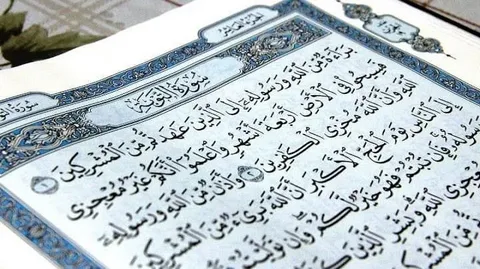 الجزء العاشر
سُورَةُ التَّوْبَةِ
بَرَآءَةٌ مِّنَ ٱللَّهِ وَرَسُولِهِۦٓ إِلَى ٱلَّذِينَ عَٰهَدتُّم مِّنَ ٱلْمُشْرِكِينَ ١
فَسِيحُوا۟ فِى ٱلْأَرْضِ أَرْبَعَةَ أَشْهُرٍ وَٱعْلَمُوٓا۟ أَنَّكُمْ غَيْرُ مُعْجِزِى
ٱللَّهِ وَأَنَّ ٱللَّهَ مُخْزِى ٱلْكَٰفِرِينَ ٢ وَأَذَٰنٌ مِّنَ ٱللَّهِ وَرَسُولِهِۦٓ
إِلَى ٱلنَّاسِ يَوْمَ ٱلْحَجِّ ٱلْأَكْبَرِ أَنَّ ٱللَّهَ بَرِىٓءٌ مِّنَ ٱلْمُشْرِكِينَ
وَرَسُولُهُۥ فَإِن تُبْتُمْ فَهُوَ خَيْرٌ لَّكُمْ وَإِن تَوَلَّيْتُمْ
مُعْجِزِى ٱللَّهِ وَبَشِّرِ ٱلَّذِينَ
مِّنَ ٱلْمُشْرِكِينَ